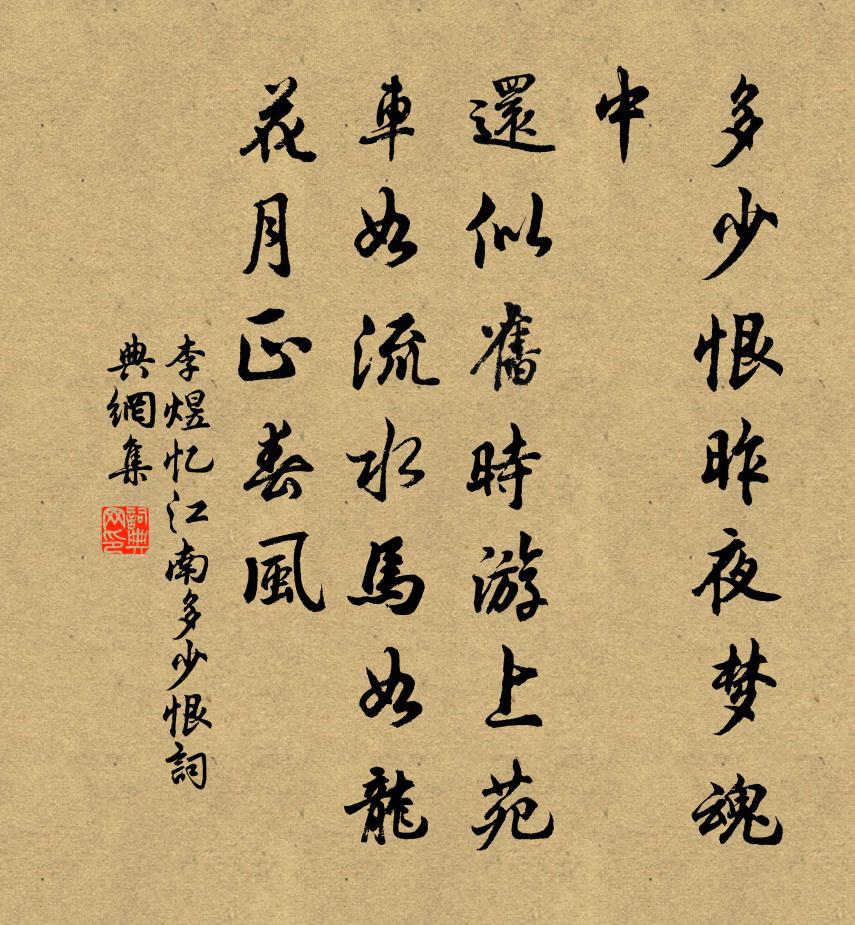 多少恨昨夜梦魂
中
還似舊時游上苑
車如流水馬如龍
花月正春風
李煜忆江南多少恨詞
典網集
詞典网印